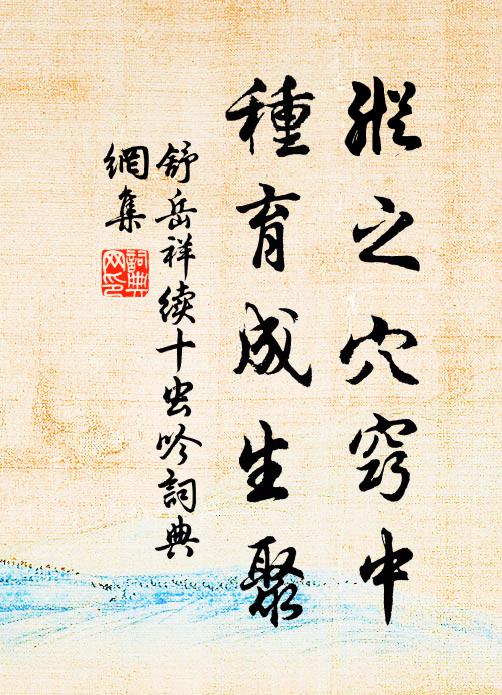 縱之穴竅中
種育成生聚
舒岳祥续十虫吟詞典
網集
詞典网印